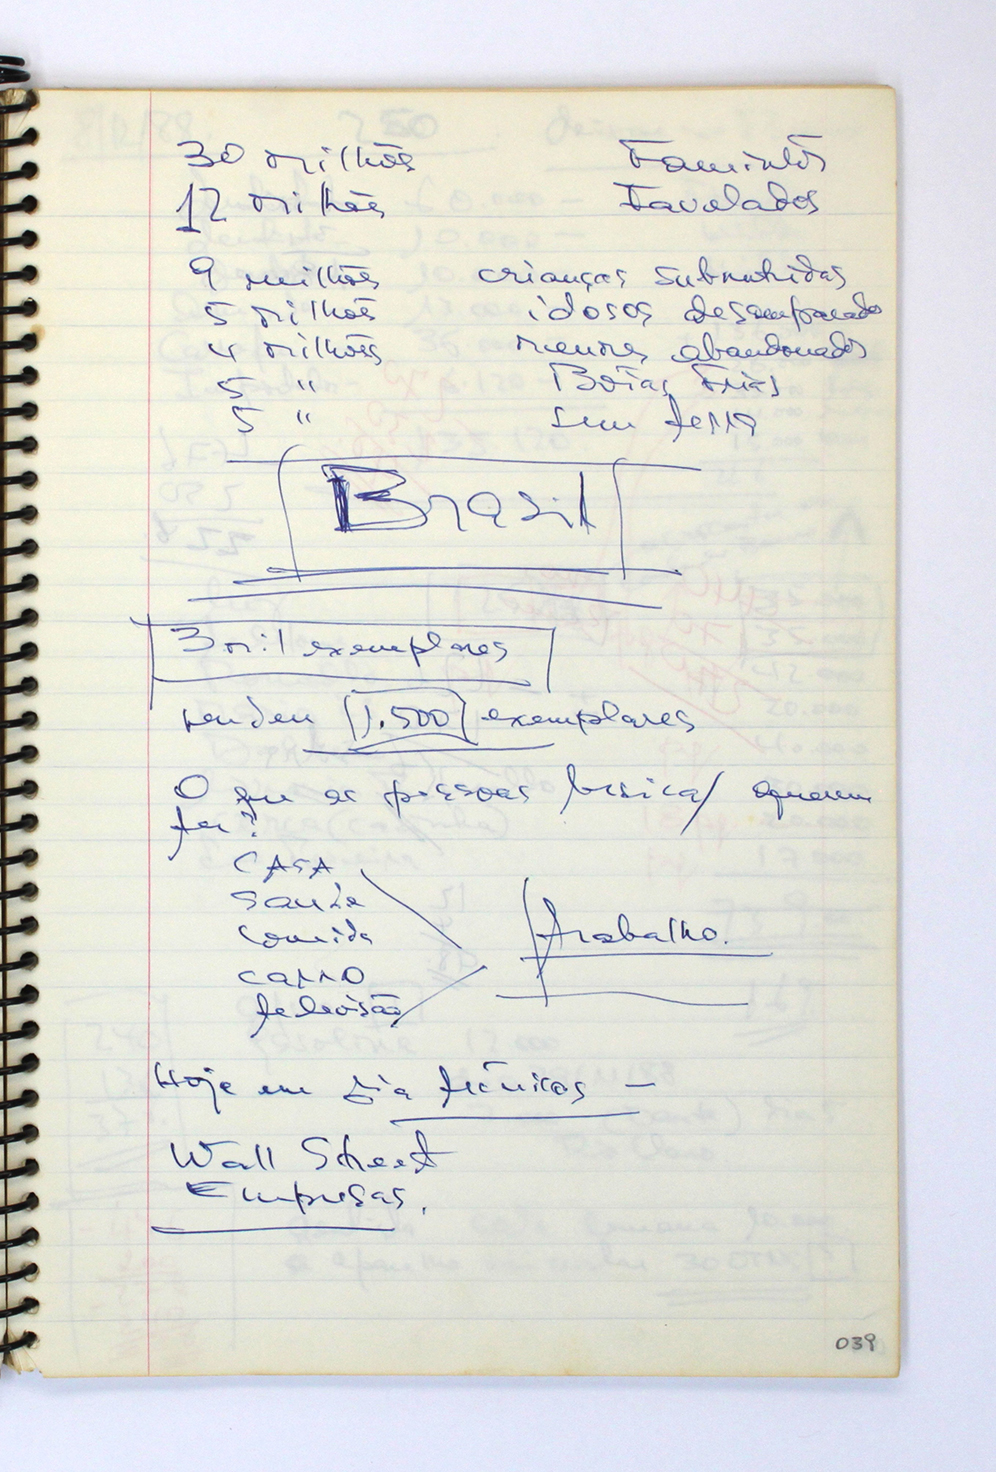 30 milhões Famintos
12 milhões Favelados
9 milhões crianças subnutridas
5 milhões idosos desamparados
4 milhões menores abandonados
5 " Boias Frias
5 " sem terra
Brasil
3 mil exemplares
vendem 1.500 exemplares
O que as pessoas basica/ querem
ter?
CASA
Saúde
Comida
carro
televisão
trabalho.
Hoje em dia técnicos —
Wall Street
Empresas.
039